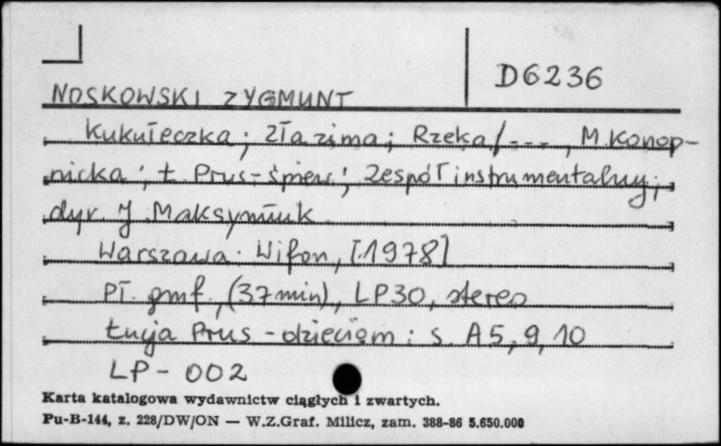 D6236
NOSKOWSKI ZYGMUNT
Kukułeczka; Zła zima; Rzeka / ---, M. Konop-
nicka ; Ł. Prus - śpiew ; Zespół instrumentalny ;
dyr. J. Maksymiuk
Warszawa : Wifon, [1978]
Pł. gmf., (37 min), LP30, stereo
Łucja Prus - dzieciom : s. A 5, 9, 10
LP - 002
Karta katalogowa wydawnictw ciągłych i zwartych.
Pu-B-144, z. 228/DW/ON — W.Z.Graf. Milicz, zam. 388-86 5.650.000